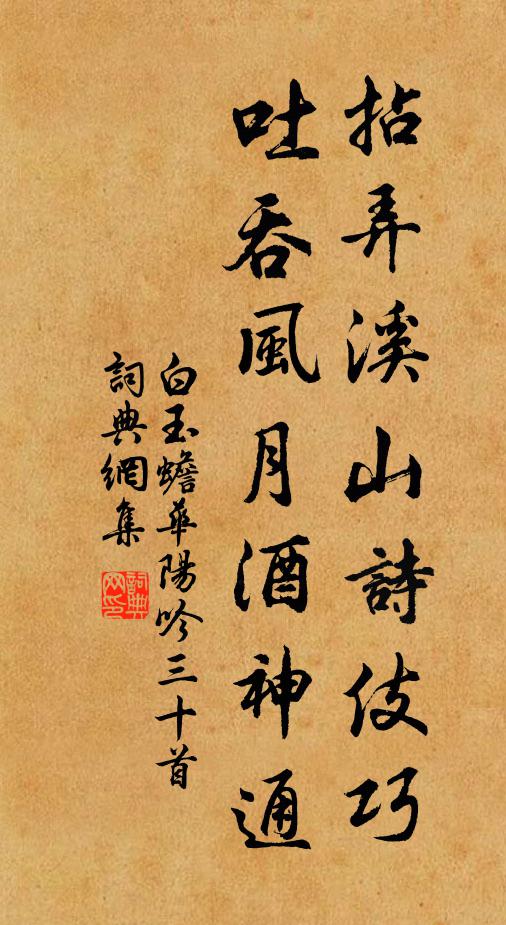 拈弄溪山詩伎巧
吐吞風月酒神通
白玉蟾華陽吟三十首
詞典網集
詞典网印